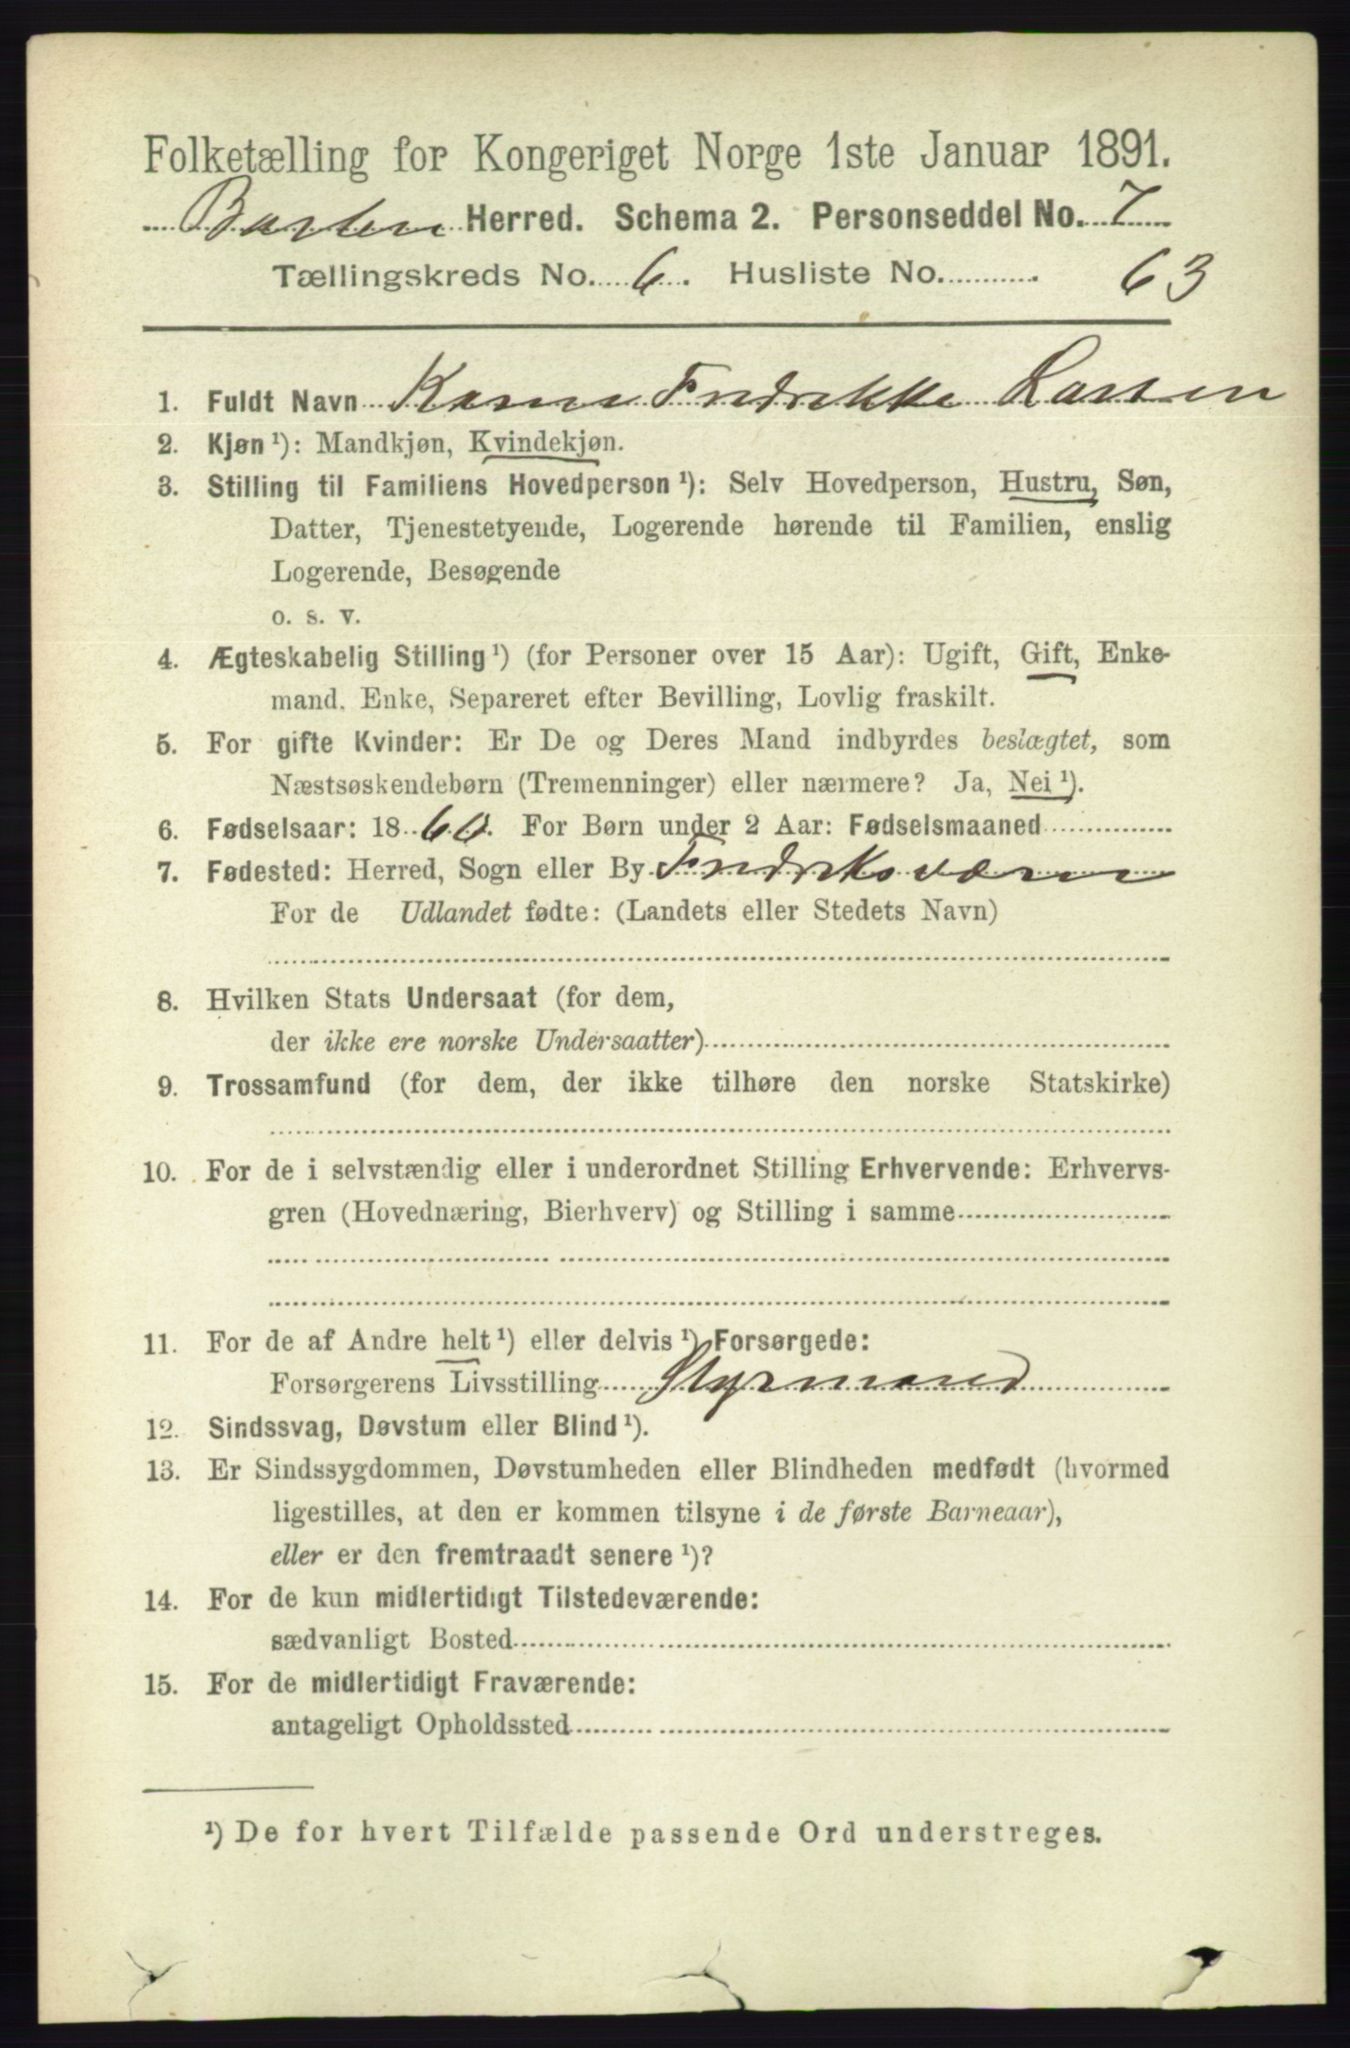 Folketælling for Kongeriget Norge 1ste Januar 1891.
Herred. Schema 2. Personseddel No. 7
Tællingskreds No. 6. Husliste No. 63
1. Fuldt Navn Fredrikke Larsen
2. Kjøn¹): Mandkjøn, Kvindekjøn.
3. Stilling til Familiens Hovedperson¹): Selv Hovedperson, Hustru, Søn,
Datter, Tjenestetyende, Logerende hørende til Familien, enslig
Logerende, Besøgende
o. s. v.
4. Ægteskabelig Stilling¹) (for Personer over 15 Aar): Ugift, Gift, Enke-
mand. Enke, Separeret efter Bevilling, Lovlig fraskilt.
5. For gifte Kvinder: Er De og Deres Mand indbyrdes beslægtet, som
Næstsøskendebørn (Tremenninger) eller nærmere? Ja, Nei¹).
6. Fødselsaar: 1860. For Børn under 2 Aar: Fødselsmaaned
7. Fødested: Herred, Sogn eller By Fredriksværn
For de Udlandet fødte: (Landets eller Stedets Navn)
8. Hvilken Stats Undersaat (for dem,
der ikke ere norske Undersaatter)
9. Trossamfund (for dem, der ikke tilhøre den norske Statskirke)
10. For de i selvstændig eller i underordnet Stilling Erhvervende: Erhvervs-
gren (Hovednæring, Bierhverv) og Stilling i samme
11. For de af Andre helt¹) eller delvis¹) Forsørgede:
Forsørgerens Livsstilling Styrmand
12. Sindssvag, Døvstum eller Blind¹).
13. Er Sindssygdommen, Døvstumheden eller Blindheden medfødt (hvormed
ligestilles, at den er kommen tilsyne i de første Barneaar),
eller er den fremtraadt senere¹)?
14. For de kun midlertidigt Tilstedeværende:
sædvanligt Bosted
15. For de midlertidigt Fraværende:
antageligt Opholdssted
¹) De for hvert Tilfælde passende Ord understreges.